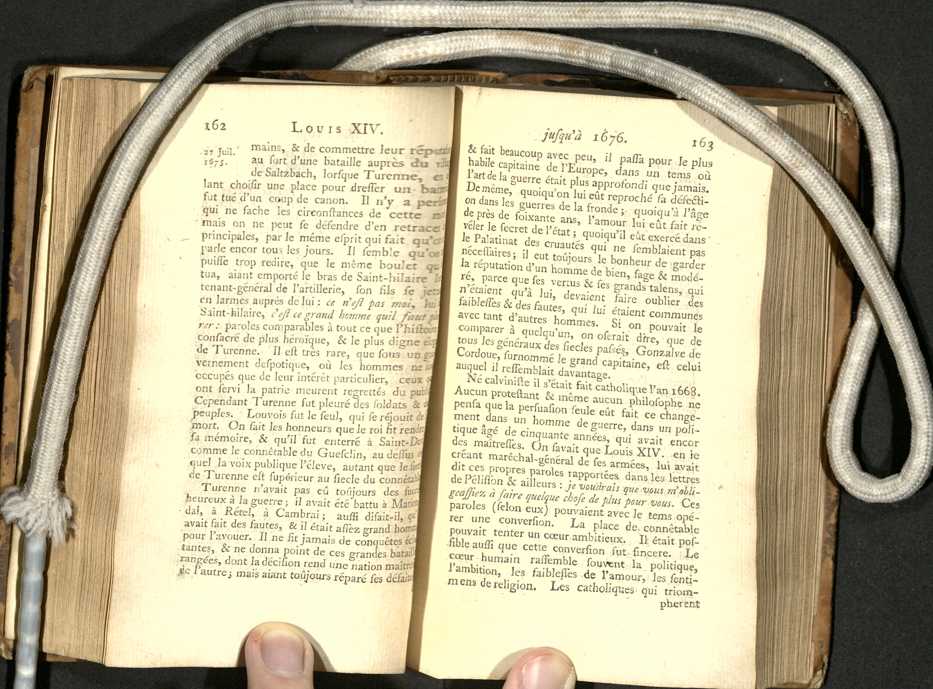 162 LOUIS XIV.
27 Juil. mains, & de commettre leur
1675. au sort d'une bataille auprès du
de Saltzbach, lorsque Turenne,
lant choisir une place pour dresser un
fut tué d'un coup de canon. Il n'y a
qui ne sache les circonstances de cette
mais on ne peut se défendre d'en
principales, par le même esprit qui fait
parle encor tous les jours. Il semble
puisse trop redire, que le même boulet
tua, aiant emporté le bras de Saint-hilaire
tenant-général de l'artillerie, son fils se
en larmes auprès de lui: ce n'est pas moi,
Saint-hilaire, c'est ce grand homme qu'il faut
rer: paroles comparables à tout ce que l'histoire
consacré de plus héroïque, & le plus digne
de Turenne. Il est très rare, que sous un
vernement despotique, où les hommes ne
occupés que de leur intérêt particulier, ceux
ont servi la patrie meurent regrettés du
Cependant Turenne fut pleuré des soldats &
peuples. Louvois fut le seul, qui se réjouit de
mort. On sait les honneurs que le roi fit
sa mémoire, & qu'il fut enterré à
comme le connétable du Guesclin, au dessus
quel la voix publique l'éleve, autant que le
de Turenne est supérieur au siecle du
Turenne n'avait pas eû toûjours des
heureux à la guerre; il avait été battu à
dal, à Rétel, à Cambrai; aussi disait-il,
avait fait des fautes, & il était assez grand
pour l'avouer. Il ne fit jamais de conquêtes
tantes, & ne donna point de ces grandes
rangées, dont la décision rend une nation
de l'autre; mais aiant toûjours réparé ses
jusqu'à 1676. 163
& fait beaucoup avec peu, il passa pour le plus
habile capitaine de l'Europe, dans un tems où
l'art de la guerre était plus approfondi que jamais.
De même, quoiqu'on lui eût reproché sa défecti-
on dans les guerres de la fronde; quoiqu'à l'âge
de près de soixante ans, l'amour lui eût fait ré-
véler le secret de l'état; quoiqu'il eût exercé dans
le Palatinat des cruautés qui ne semblaient pas
nécessaires; il eut toûjours le bonheur de garder
la réputation d'un homme de bien, sage & modé-
ré, parce que ses vertus & ses grands talens, qui
n'étaient qu'à lui, devaient faire oublier des
faiblesses & des fautes, qui lui étaient communes
avec tant d'autres hommes. Si on pouvait le
comparer à quelqu'un, on oserait dire, que de
tous les généraux des siecles passés, Gonzalve de
Cordoue, surnommé le grand capitaine, est celui
auquel il ressemblait davantage.
Né calviniste il s'était fait catholique l'an 1668.
Aucun protestant & même aucun philosophe ne
pensa que la persuasion seule eût fait ce change-
ment dans un homme de guerre, dans un poli-
tique âgé de cinquante années, qui avait encor
des maitresses. On savait que Louis XIV. en le
créant maréchal-général de ses armées, lui avait
dit ces propres paroles rapportées dans les lettres
de Pélisson & ailleurs: je voudrais que vous m'obli-
geassiez à faire quelque chose de plus pour vous. Ces
paroles (selon eux) pouvaient avec le tems opé-
rer une conversion. La place de connétable
pouvait tenter un cœur ambitieux. Il était pos-
sible aussi que cette conversion fut sincere. Le
cœur humain rassemble souvent la politique,
l'ambition, les faiblesses de l'amour, les senti-
mens de religion. Les catholiques qui triom-
pherent